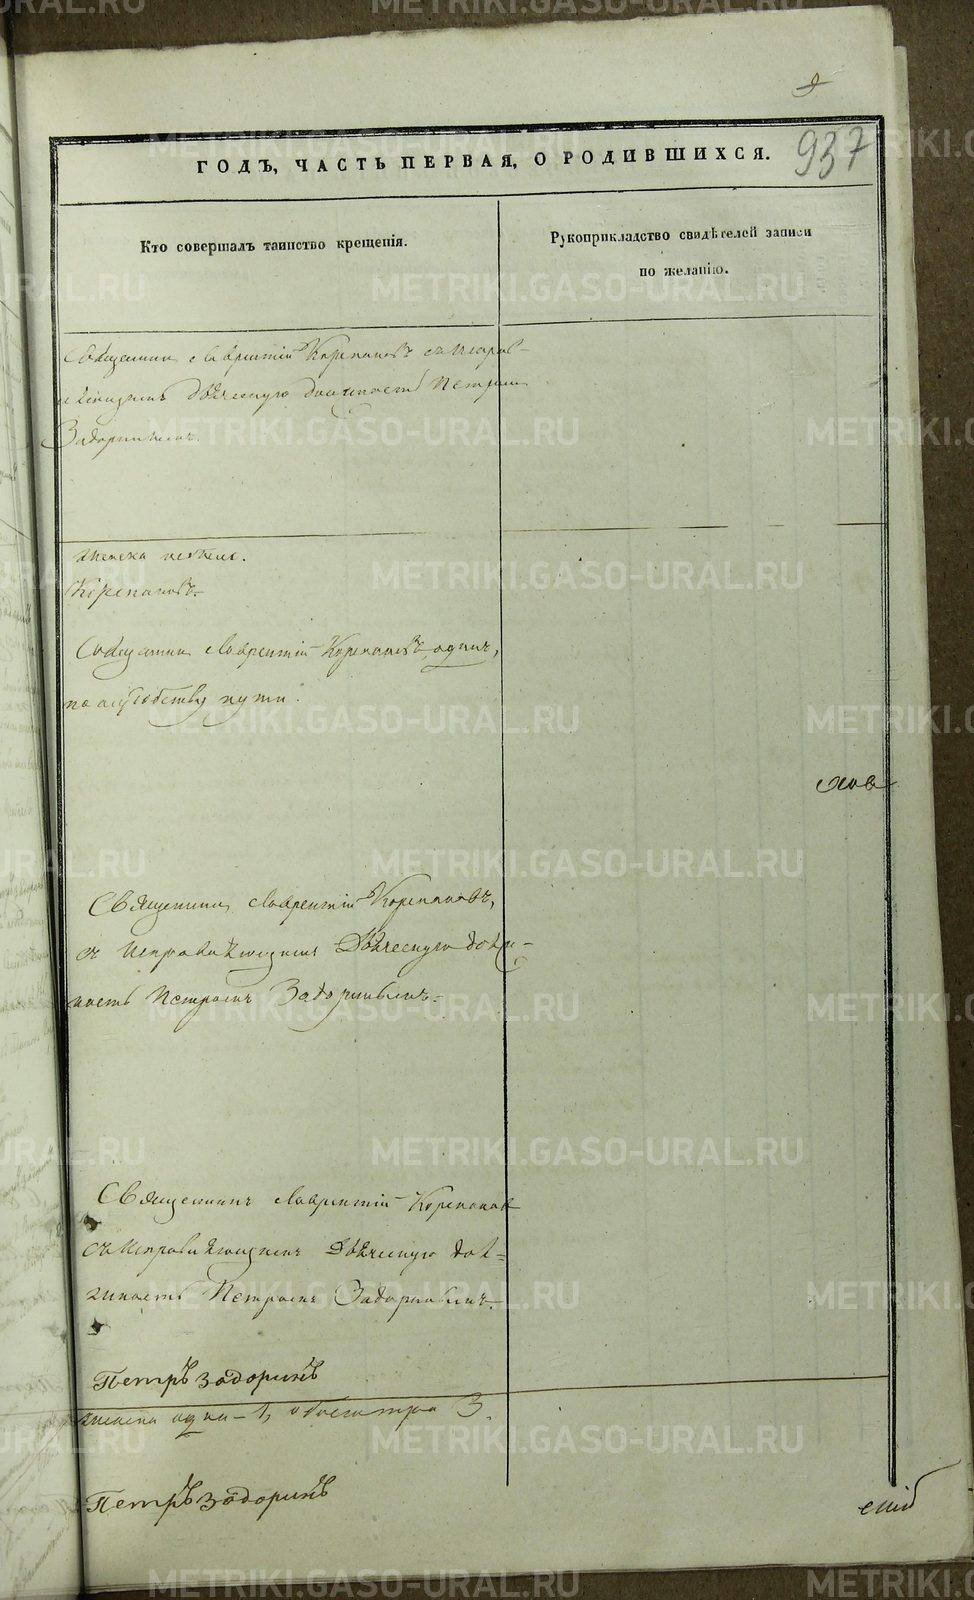 9
937
ГОДЪ, ЧАСТЬ ПЕРВАЯ, О РОДИВШИХСЯ.
Кто совершалъ таинство крещенія.
Рукоприкладство свидѣтелей записи
по желанію.
Священникъ Лаврентій Корепановъ съ исправ-
ляющимъ Дьяческую должность Петромъ
Задоринымъ.
женска
Корепановъ.
Священникъ Лаврентій Корепановъ одинъ,
по неудобству пути.
Священникъ Лаврентій Корепановъ,
съ исправляющимъ Дьяческую долж-
ность Петромъ Задоринымъ.
Священникъ Лаврентій Корепановъ
съ исправляющимъ Дьяческую дол-
жность Петромъ Задоринымъ.
Петръ Задоринъ
женска одна - 1, обоего три 3.
Петръ Задоринъ
METRIKI.GASO-URAL.RU